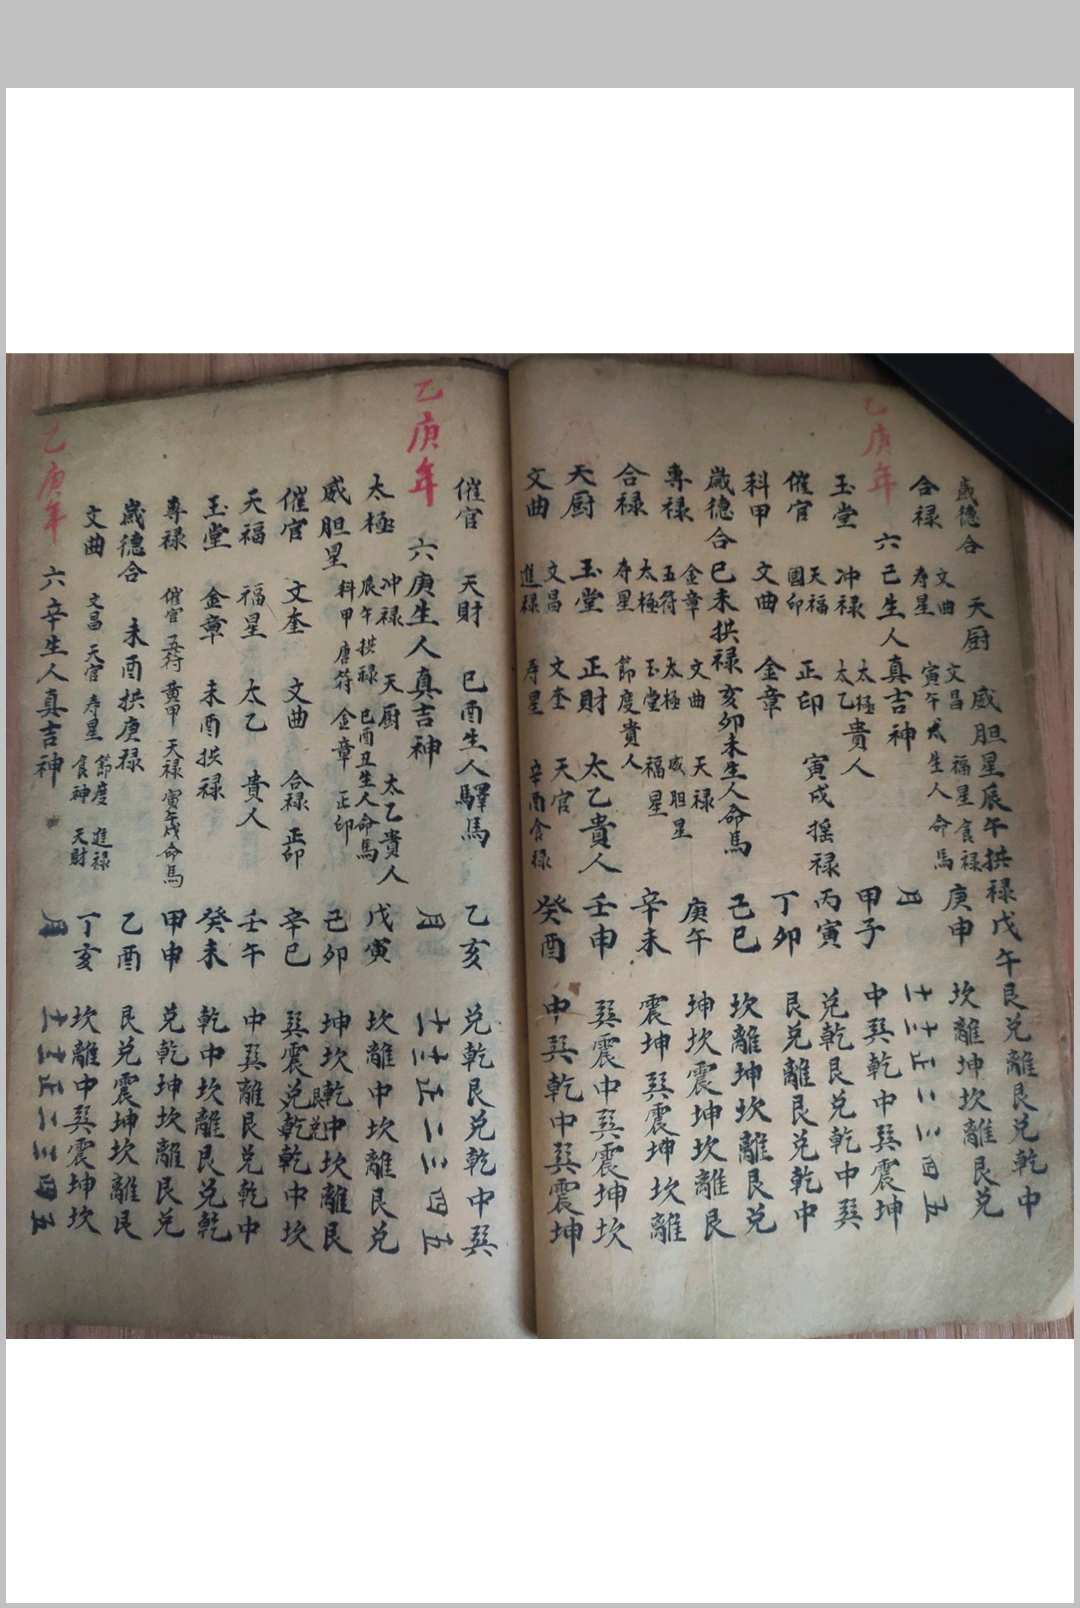 歲德合 天厨 威胆星辰午拱禄戊午艮兑離艮兑乾中
合禄 文曲 寿星 文昌 寅午戌生人命馬 福星食禄 庚申 坎離坤坎離艮兑
乙庚年
六己生人真吉神 月 十一十二正二三四五
玉堂 冲禄 太極 太乙 貴人 甲子 中巽乾中巽震坤
催官 天福 國印 正印 寅戌摇禄 丙寅 兑乾艮兑乾中巽
科甲 文曲 金章 丁卯 艮兑離艮兑乾中
歲德合 巳未拱禄亥卯未生人命馬 己巳 坎離坤坎離艮兑
專禄 金章 五符 文曲 太極 天禄 威胆星 庚午 坤坎震坤坎離艮
合禄 太極 寿星 玉堂 節度貴人 福星 辛未 震坤巽震坤坎離
天厨 玉堂 正財 太乙貴人 壬申 巽震中巽震坤坎
文曲 文昌 進禄 文奎 寿星 天官 辛酉食禄 癸酉 中巽乾中巽震坤
催官 天財 巳酉生人驛馬 乙亥 兑乾艮兑乾中巽
乙庚年
六庚生人真吉神 月 十一十二正二三四五
太極 冲禄 辰午拱禄 天厨 巳酉丑生人命馬 太乙貴人 戊寅 坎離中坎離艮兑
威胆星 科甲 唐符 金章 正印 己卯 坤坎乾中坎離艮
催官 文奎 文曲 合禄 正印 辛巳 巽震兑乾乾中坎
天福 福星 太乙 貴人 壬午 中巽離艮兑乾中
玉堂 金章 未酉拱禄 癸未 乾中坎離艮兑乾
專禄 催官 五符 黄甲 天禄 寅午戌命馬 甲申 兑乾坤坎離艮兑
歲德合 未酉拱庚禄 乙酉 艮兑震坤坎離艮
文曲 文昌 天官 寿星 節度 食神 進禄 天財 丁亥 坎離中巽震坤坎
乙庚年
六辛生人真吉神 月 十一十二正二三四五